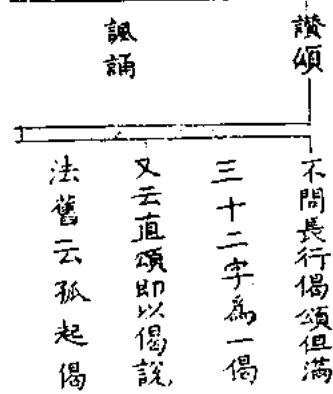 讚頌
諷誦
不問長行偈頌但滿
三十二字為一偈
又云直頌即以偈說
法舊云孤起偈